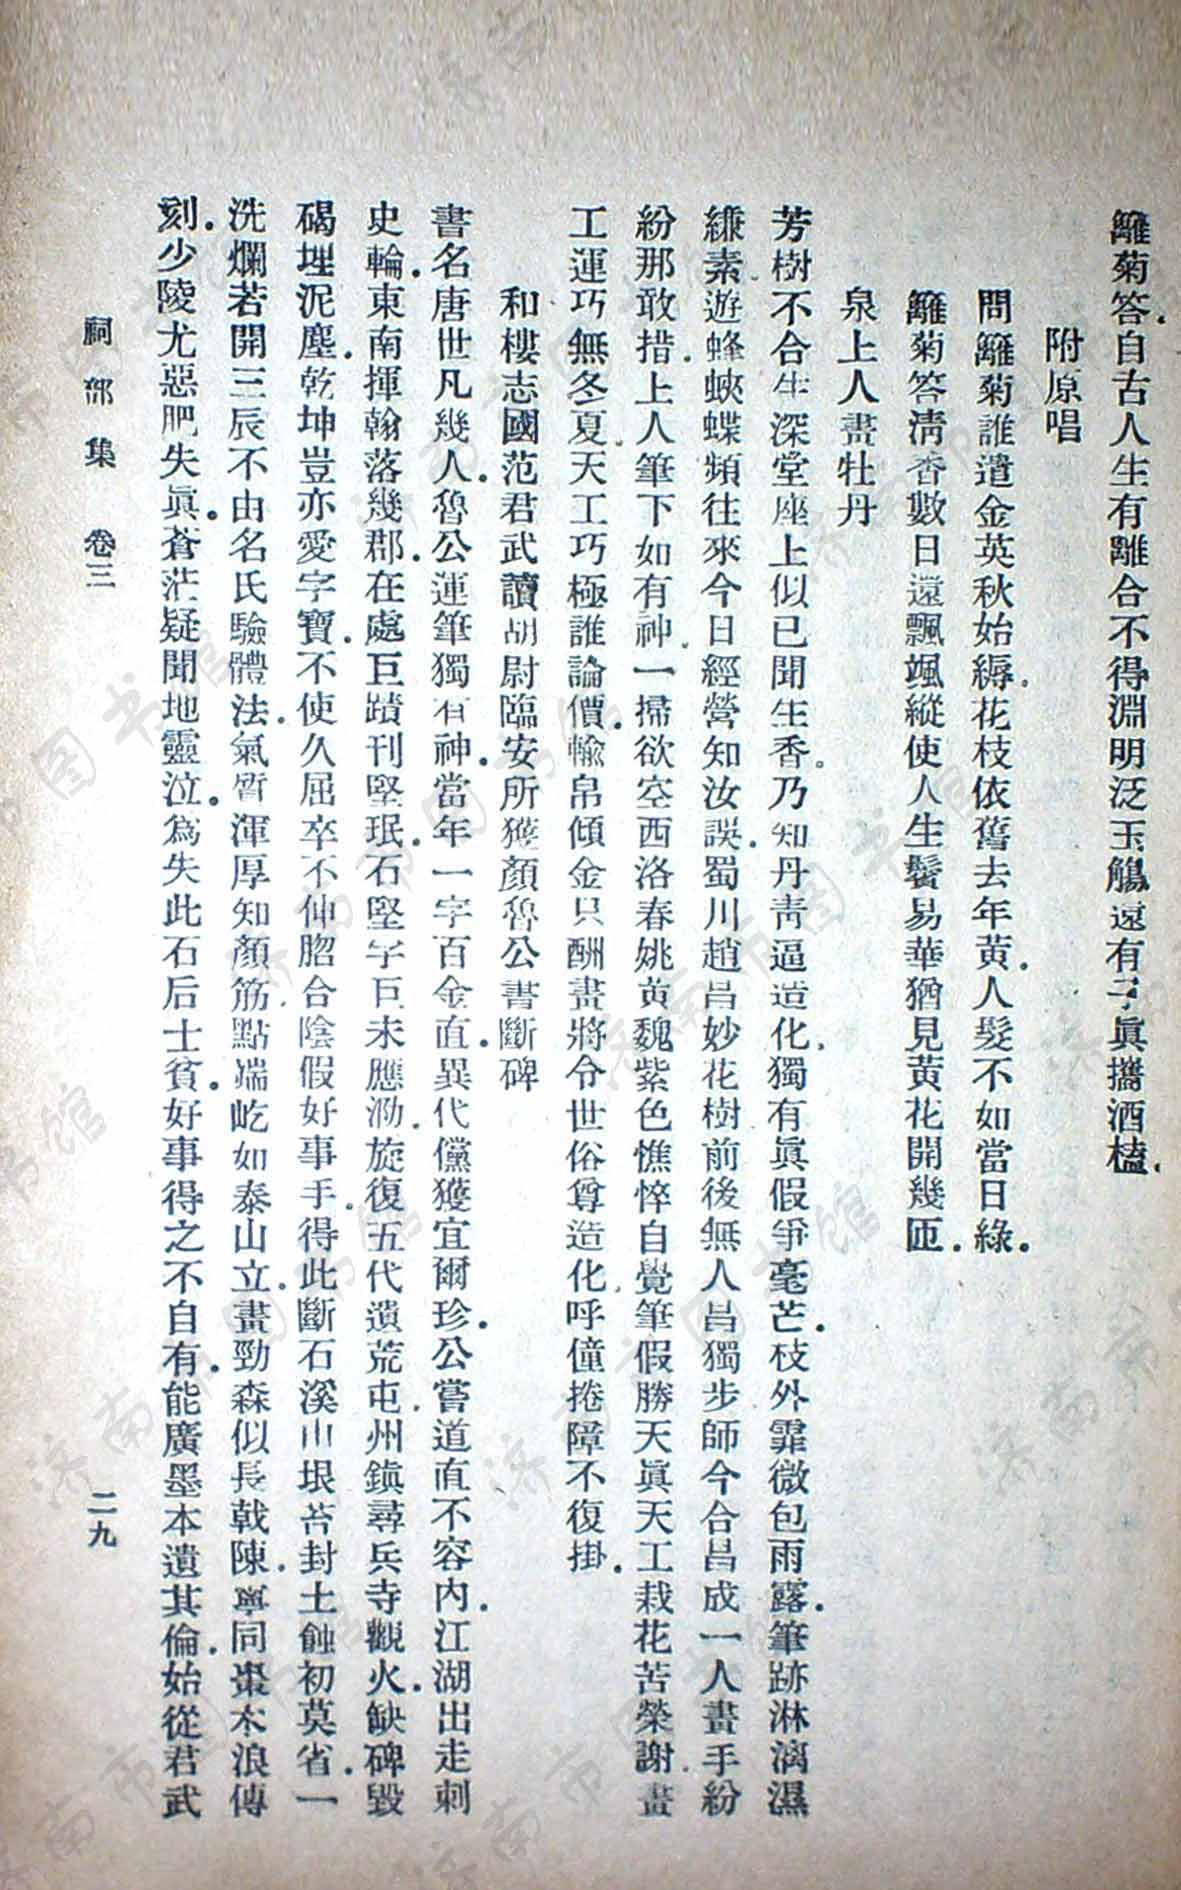 籬菊答自古人生有離合不得淵明泛玉觴遠有子眞攜酒榼
附原唱
問籬菊誰遣金英秋始縟花枝依舊去年黃人髮不如當日綠
籬菊答清香數日還飄颯縱使人生鬢易華猶見黃花開幾匝
泉上人畫牡丹
芳樹不合生深堂座上似已聞生香乃知丹靑逼造化獨有眞假爭毫芒枝外霏微包雨露筆跡淋漓濕
縑素遊蜂蛺蝶頻往來今日經營知汝誤蜀川趙昌妙花樹前後無人昌獨步師今合昌成一人畫手紛
紛那敢措上人筆下如有神一掃欲空西洛春姚黃魏紫色憔悴自覺筆假勝天眞天工栽花苦榮謝畫
工運巧無冬夏天工巧極誰論價輸帛傾金只酬畫將令世俗尊造化呼僮捲障不復掛
和樓志國范君武讀胡尉臨安所獲顏魯公書斷碑
書名唐世凡幾人魯公運筆獨有神當年一字百金直異代儻獲宜爾珍公嘗道直不容內江湖出走刺
史輪東南揮翰落幾郡在處巨蹟刊堅珉石堅字巨未應泐旋復五代遺荒屯州鎮尋兵寺觀火缺碑毀
碣埋泥塵乾坤豈亦愛字寶不使久屈卒不伸脗合陰假好事手得此斷石溪山垠苔封土蝕初莫省一
洗爛若開三辰不由名氏驗體法氣質渾厚知顏筋點端屹如泰山立畫勁森似長戟陳寧同棗木浪傳
刻少陵尤惡肥失眞蒼茫疑聞地靈泣爲失此石后土貧好事得之不自有能廣墨本遺其倫始從君武
祠部集 卷三
二九